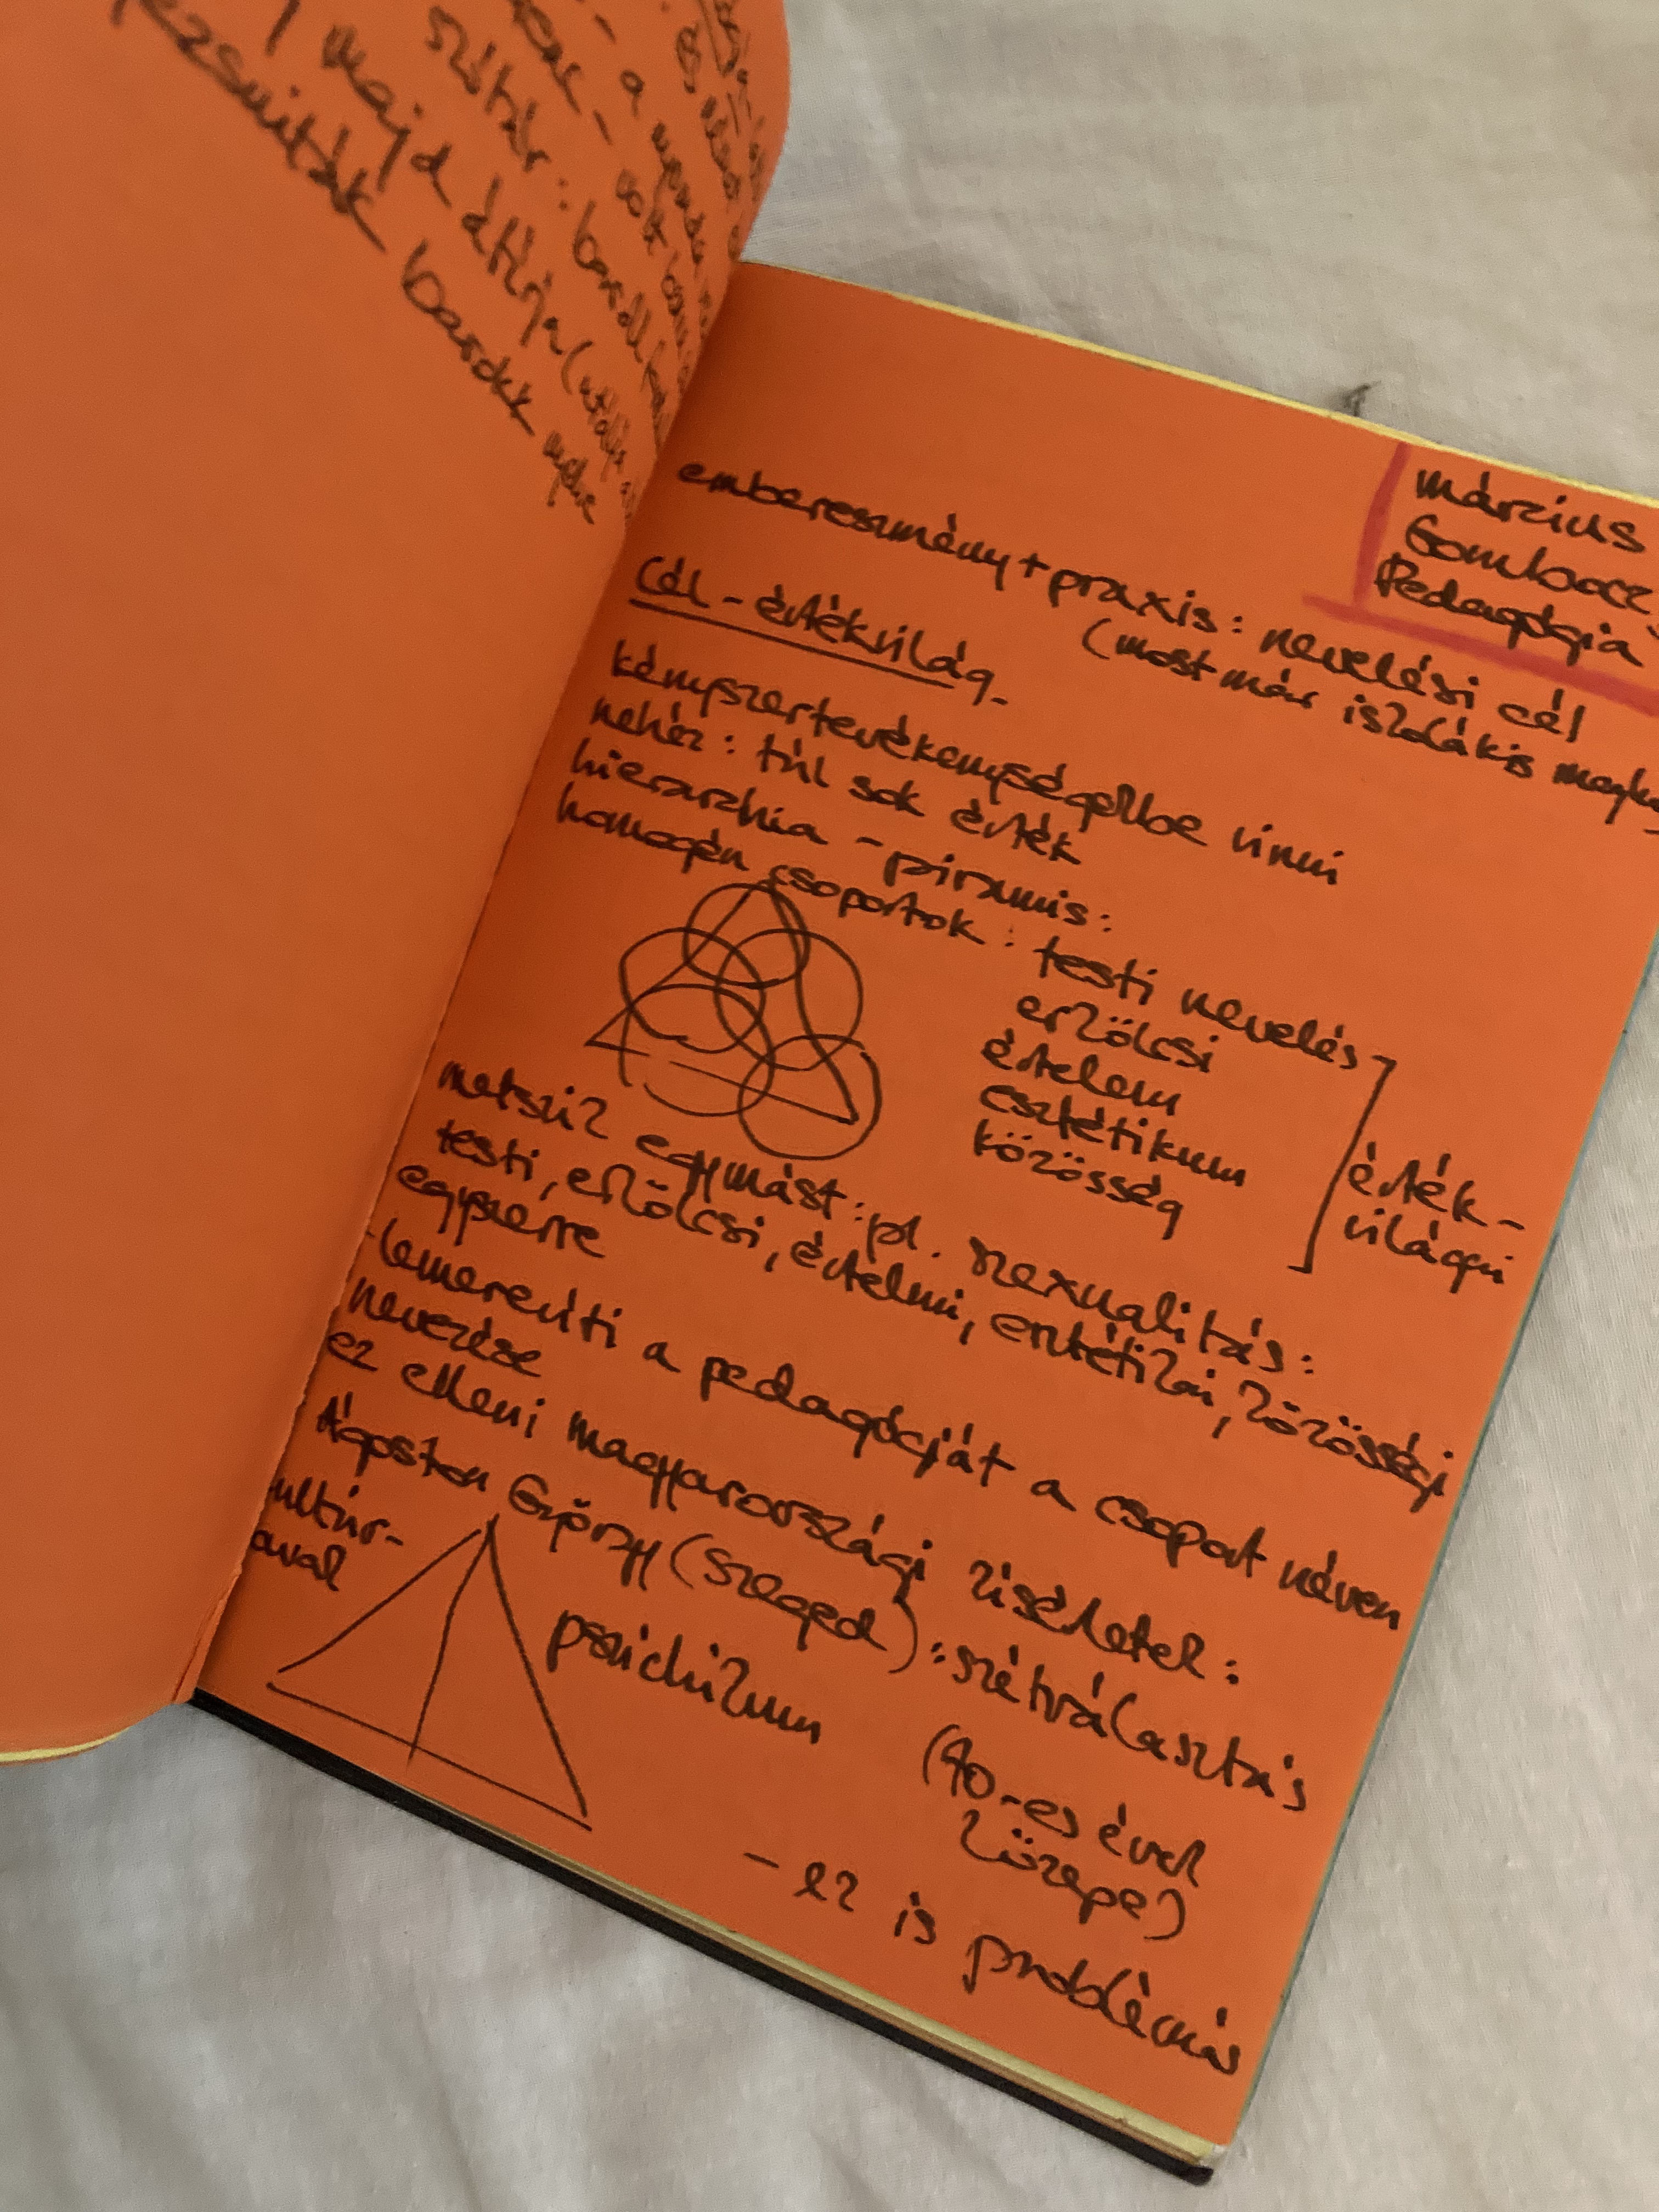 majd átírja
szótár:
jezsuiták barokk
március
Gombocz
Pedagógia
embereszmény + praxis: nevelési cél
(most már iskolák is
Cél - értékvilág
kényszertevékenységekbe vinni
nehéz: túl sok érték
hierarchia - piramis:
homogén csoportok: testi nevelés
erkölcsi
értelem
esztétikum
közösség
érték-
világai
metszik egymást: pl. szexualitás:
testi, erkölcsi, értelmi, esztétikai, közösségi
egyszerre
-lemereviti a pedagógiát a csoport néven
nevezése
ez elleni magyarországi kisérletek:
Ágoston György (Szeged): szétválasztás
(70-es évek
közepe)
pszichikum
- ez is problémás